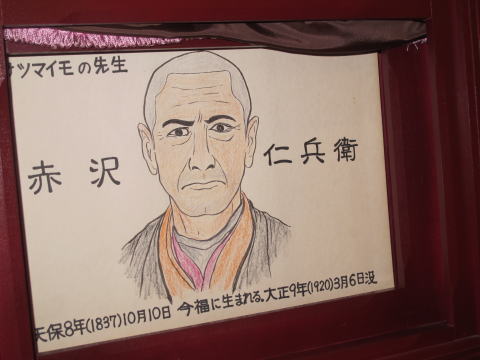 サツマイモの先生
赤沢 仁兵衛
天保8年(1837)10月10日 今福に生まれる。大正9年(1920)3月6日没